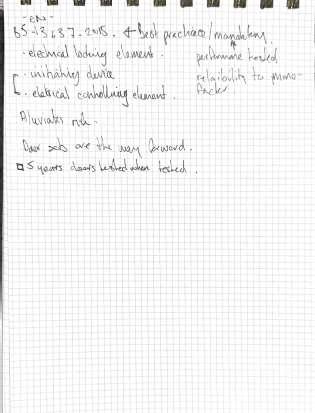 -EN-
BS-13637-2015. ← Best practice/mandatory.
· electrical locking element. performance tested
· initiating device reliability to manu-
· eletrical controlling element. facter
Aluviates risk.
Door sets are the way forward.
5 years doors tested when tested.